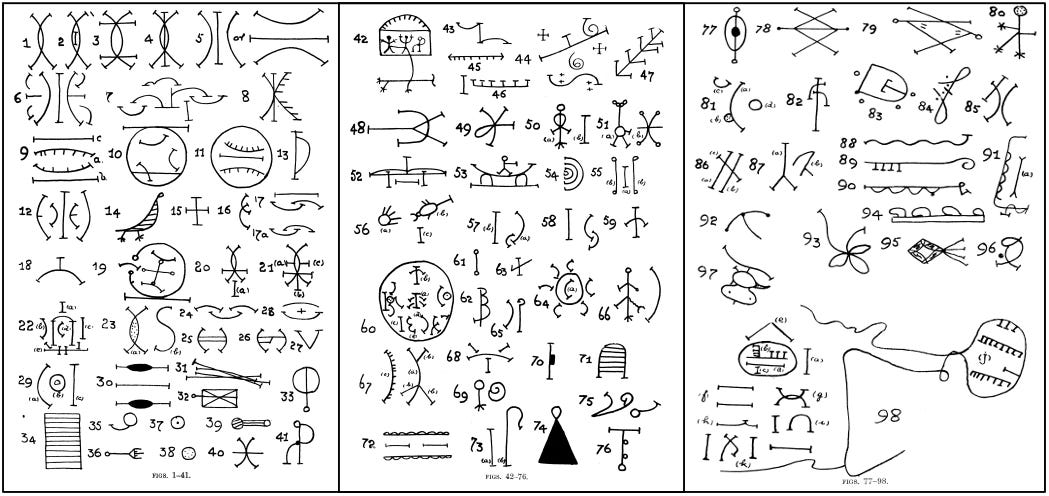 1 2 3 4 5 or
6 7 8
9 c a b 10 11 13
12 14 15 16 17 17a
18 19 20 (a) 21 (a) (c) (b)
22 (a) (b) (d) (c) (e) 23 (a) (b) 24 28 25 26 27
29 (a) (b) (c) 30 31 32 33
34 35 37 39
36 38 40 41
FIGS. 1-41.
42 43 44 45 46 47
48 49 50 (a) (b) 51 (a) (b)
52 53 54 55 (b) (a) (b)
56 (a) (b) (c) 57 (b) (a) 58 59
60 61 62 63 64 (a) 65 66
67 (a) (b) (b) 68 69 70 71
72 73 (a) (b) 74 75 76
FIGS. 42-76.
77 78 79 80
81 (c) (a) (b) (d) 82 83 84 85
86 (c) (a) (b) 87 (a) (b) 88 89 90 91 (a)
92 93 94 95 96
97
98 (e) (b) (c) (d) (a) (j)
(f) (g)
(h) (i)
(k)
FIGS. 77-98.